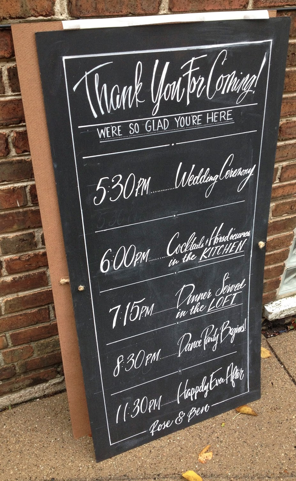 Thank You For Coming!
WE'RE SO GLAD YOU'RE HERE
5:30PM Wedding Ceremony
6:00PM Cocktails & Hors d'oeuvres
in the KITCHEN
7:15PM Dinner Served
in the LOFT
8:30PM Dance Party Begins!
11:30PM Happily Ever After
Rose & Ben